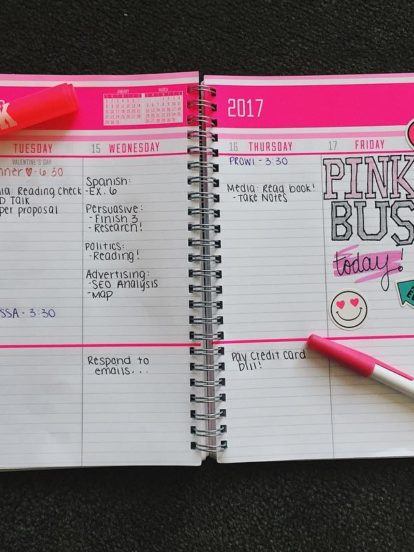 2017
JANUARY
MARCH
TUESDAY
15 WEDNESDAY
16 THURSDAY
17 FRIDAY
VALENTINE'S DAY
nner ♥ - 6:30
ia: Reading Check
D Talk
per proposal
SSA - 3:30
Spanish:
- Ex. 6
Persuasive:
- Finish 3
- Research!
Politics:
- Reading!
Advertising:
- SEO Analysis
- Map
Respond to
emails...
PROWL - 3:30
Media: Read book!
- Take Notes
Pay Credit Card
bill!
PINK
BUS
today.